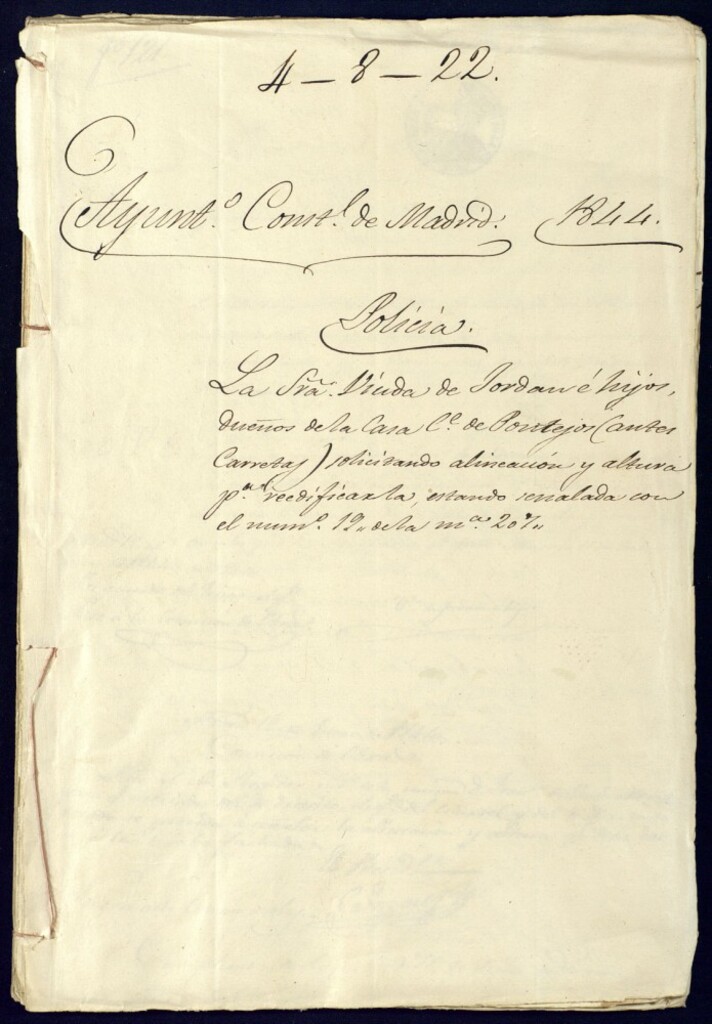 4 – 8 – 22.
Ayunt.º Const.l de Madrid. 1844.
Policia.
La Sra. Viuda de Jordan é hijos,
dueños de la Casa C.e de Pontejos (antes
Carretas) solicitando alineación y altura
p.a reedificarla, estando señalada con
el num.º 12,, de la m.a 207,,